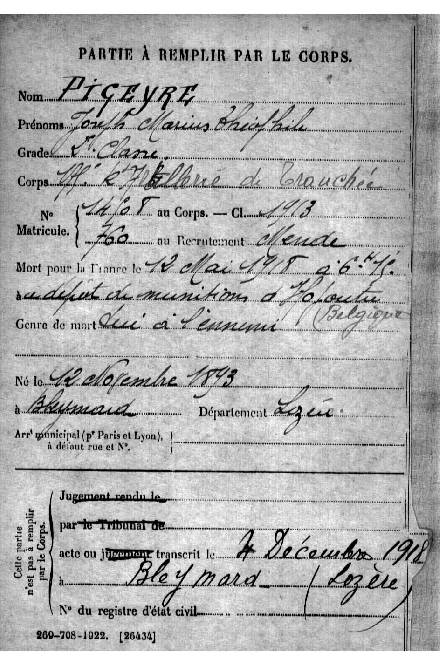 PARTIE À REMPLIR PAR LE CORPS.
Nom PIGEYRE
Prénoms Joseph Marius Théophile
Grade 2e Classe
Corps d'Artillerie de Tranchée
No Matricule.
au Corps. — Cl. 1913
760 au Recrutement Mende
Mort pour la France le 12 Mai 1918 à 6h 15
au dépôt de munitions d'
(Belgique
Genre de mort Tué à l'ennemi
Né le 12 Novembre 1893
à Bleymard Département Lozère
Arrt municipal (pr Paris et Lyon),
à défaut rue et No.
Cette partie
n'est pas à remplir
par le Corps.
Jugement rendu le
par le Tribunal de
acte ou jugement transcrit le 4 Décembre 1918
à Bleymard (Lozère)
No du registre d'état civil
269-708-1922. [26434]